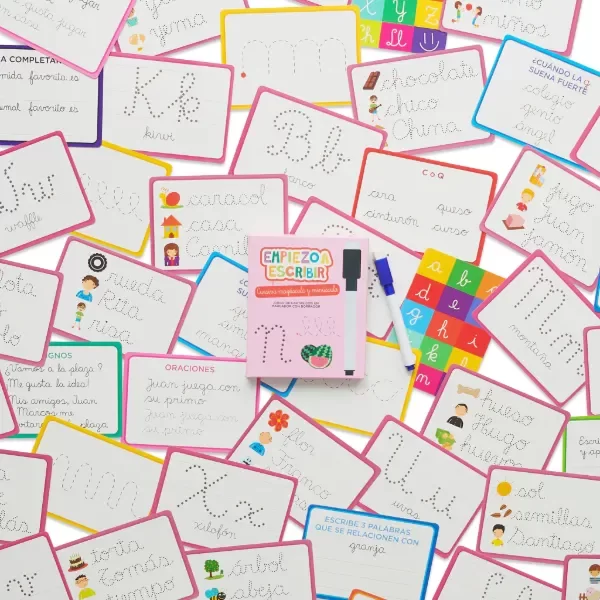 chocolate
chico
China
niños
A COMPLETAR
mida favorita es
mal favorito es
Kk
kiwi
mo
Y Z
Ll
¿CUÁNDO LA G
SUENA FUERTE
colegio
gente
ángel
Ww
waffle
caracol
casa
Camil
Bb
C o Q
cara queso
cinturón curso
jugo
Juan
jamón
rueda
Rita
risa
EMPIEZO A
ESCRIBIR
Cursiva mayúscula y minúscula
n
a b c
d e
g h
montaña
GNOS
¿Vamos a la plaza ?
Me gusta la idea!
Mis amigos, Juan
Marcos, me
plaza
ORACIONES
Juan juega con
su primo
Juan juega con
su primo
flor
Franco
hueso
Hugo
huevo
m m
Xx
xilofón
Uu
uvas
sol
semillas
Santiago
ESCRIBE 3 PALABRAS
QUE SE RELACIONEN CON
granja
torta
Tomás
tiempo
árbol
abeja